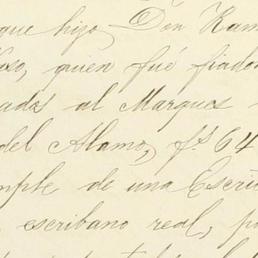 que hizo Don Ram
oso, quien fué fiador
adas al Marques
del Alamo, fs 64
mple de una Escri
escribano real, p